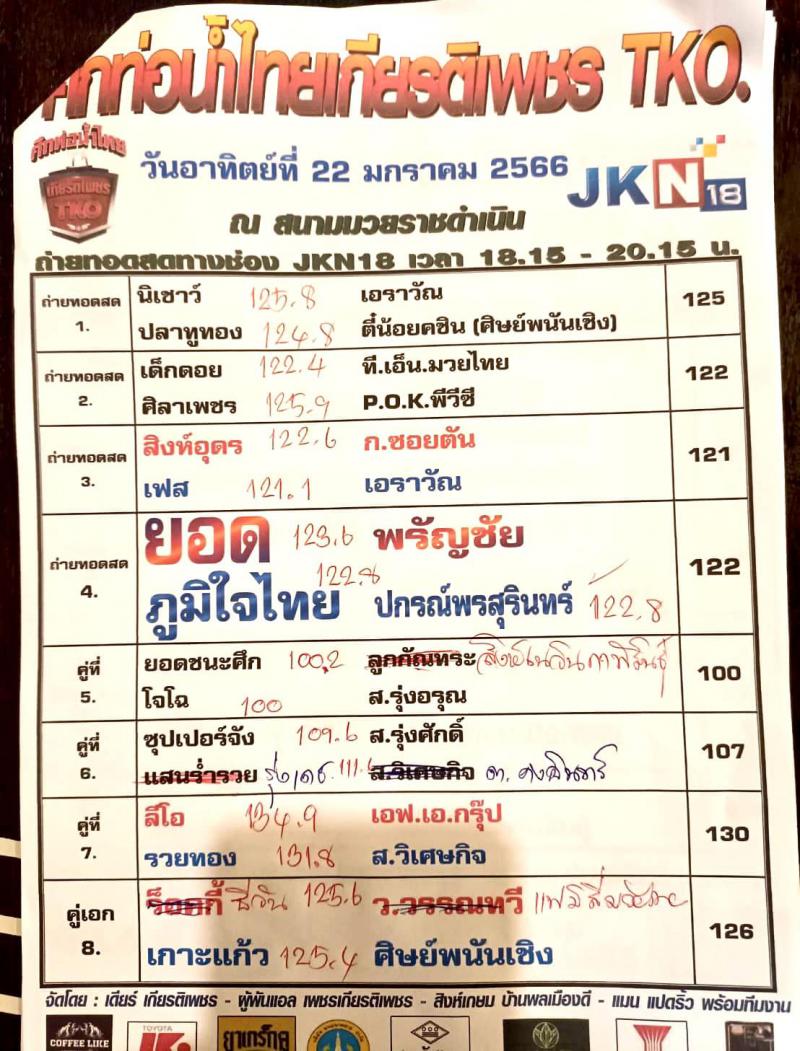 ศึกท่อน้ำไทยเกียรติเพชร TKO.
ศึกท่อน้ำไทย
เกียรติเพชร
TKO
วันอาทิตย์ที่ 22 มกราคม 2566
JKN18
ณ สนามมวยราชดำเนิน
ถ่ายทอดสดทางช่อง JKN18 เวลา 18.15 - 20.15 น.
ถ่ายทอดสด 1. นิเชาว์ 125.8 เอราวัณ 125
ปลาทูทอง 124.8 ตี๋น้อยคชิน (ศิษย์พนันเชิง)
ถ่ายทอดสด 2. เด็กดอย 122.4 ที.เอ็น.มวยไทย 122
ศิลาเพชร 125.9 P.O.K.พีวีซี
ถ่ายทอดสด 3. สิงห์อุดร 122.6 ก.ซอยตัน 121
เฟส 121.1 เอราวัณ
ถ่ายทอดสด 4. ยอด 123.6 พรัญชัย 122
122.8
ภูมิใจไทย ปกรณ์พรสุรินทร์ 122.8
คู่ที่ 5. ยอดชนะศึก 100.2 ลูกกัณทระ 100
โจโฉ 100 ส.รุ่งอรุณ
คู่ที่ 6. ซุปเปอร์จัง 109.6 ส.รุ่งศักดิ์ 107
แสนร่ำรวย รุ่งเดช 111.6 ส.วิเศษกิจ
คู่ที่ 7. ลีโอ 134.9 เอฟ.เอ.กรุ๊ป 130
รวยทอง 131.8 ส.วิเศษกิจ
คู่เอก 8. ร็อคกี้ ชีวิน 125.6 ว.วรรณทวี 126
เกาะแก้ว 125.4 ศิษย์พนันเชิง
จัดโดย : เดียร์ เกียรติเพชร - ผู้พันแอล เพชรเกียรติเพชร - สิงห์เกษม บ้านพลเมืองดี - แมน แปดริ้ว พร้อมทีมงาน
COFFEE LIKE
TOYOTA
ยาเกร็กคู